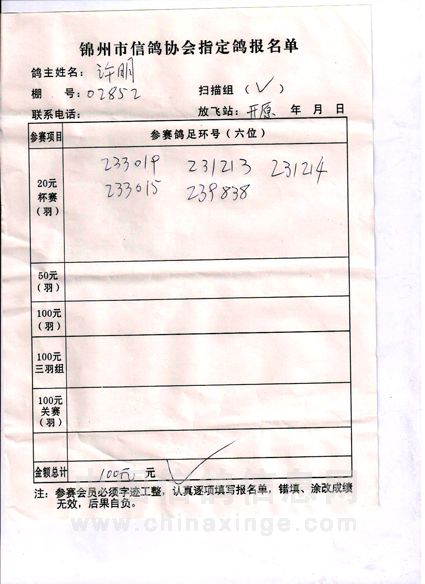 锦州市信鸽协会指定鸽报名单
鸽主姓名：许明
棚 号：02852 扫描组（✓）
联系电话： 放飞站：开原 年 月 日
参赛项目 参赛鸽足环号（六位）
20元
杯赛
（羽）
233019 231213 231214
233015 239838
50元
（羽）
100元
（羽）
100元
三羽组
100元
关赛
（羽）
金额总计 100元 元 ✓
注：参赛会员必须字迹工整，认真逐项填写报名单，错填、涂改成绩
无效，后果自负。
www.chinaxinge.com